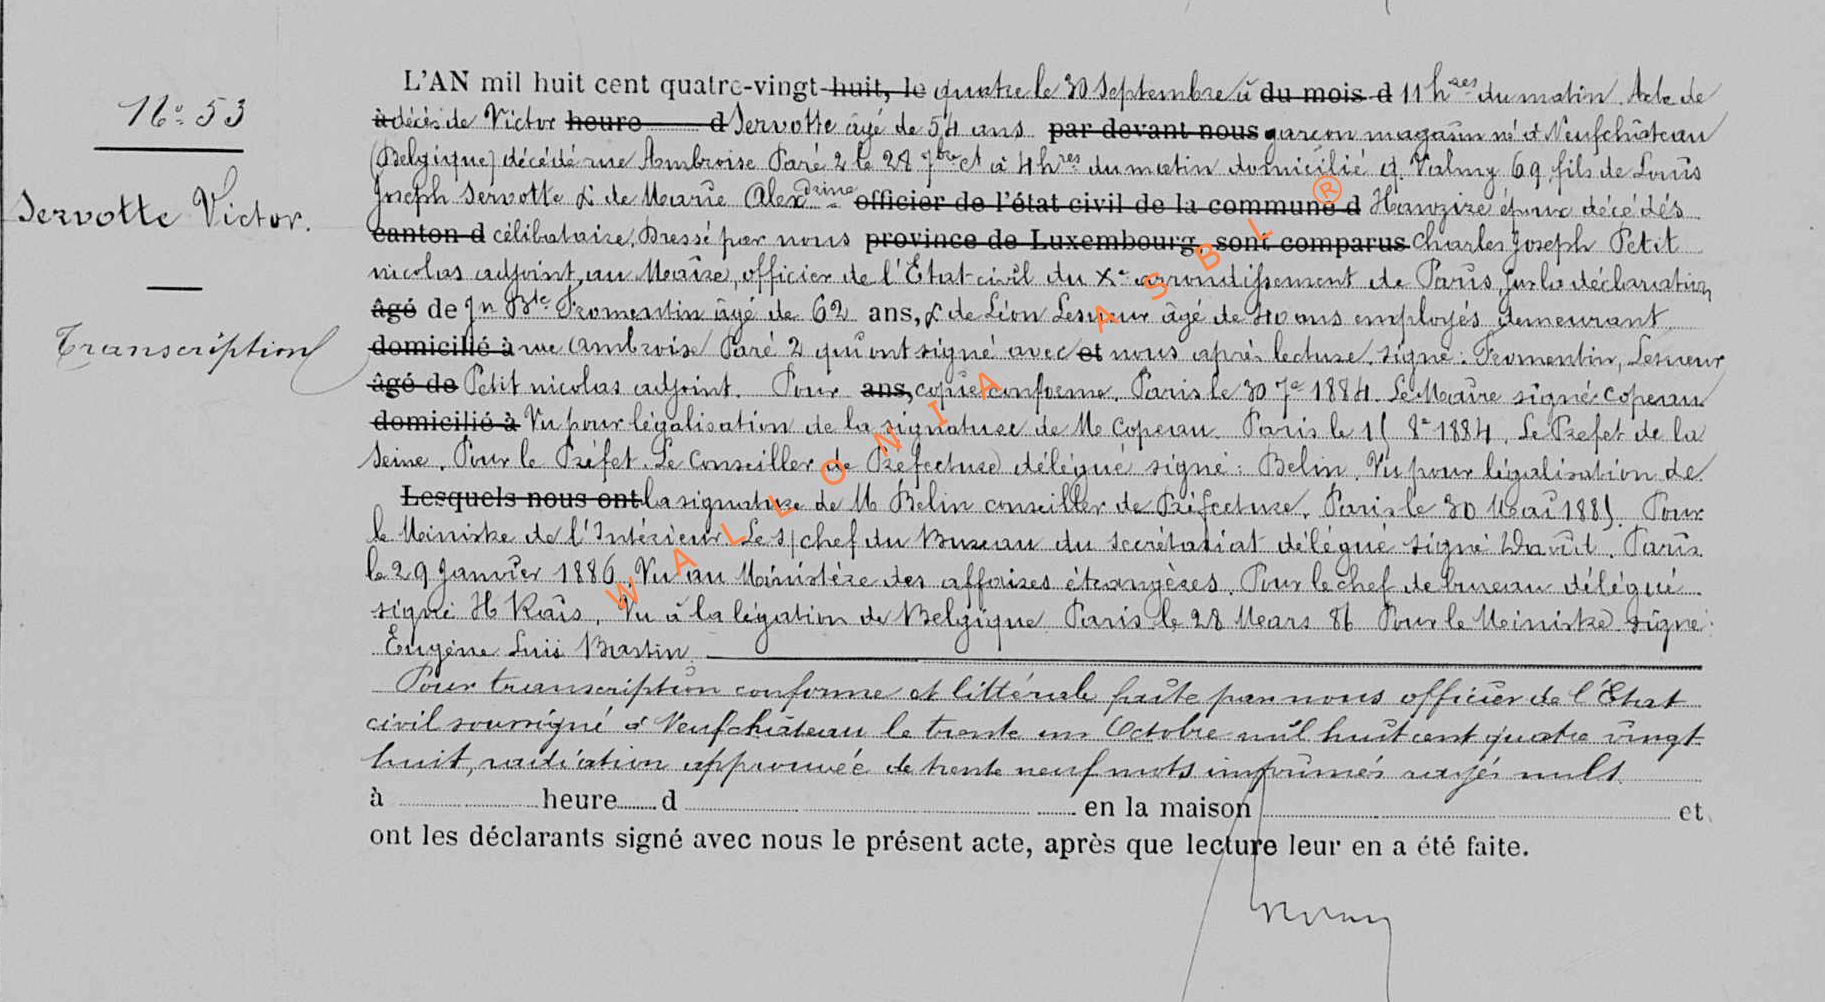 N° 53
Servotte Victor.
Transcription
L'AN mil huit cent quatre-vingt-huit, le quatre le 30 Septembre à du mois d 11 hres du matin. Acte de
à décès de Victor heure d Servotte âgé de 54 ans par devant nous garçon magasin né à Neufchâteau
(Belgique) décédé rue Ambroise Paré 2 le 28 7bre ct à 4 hres du matin domicilié q. Valmy 69 fils de Louis
Joseph Servotte & de Marie Alexdrine officier de l'état civil de la commune d Hanzire époux décédés
canton d célibataire. Dressé par nous province de Luxembourg, sont comparus Charles Joseph Petit
nicolas adjoint au Maire, officier de l'État-civil du Xe arrondissement de Paris, sur la déclaration
âgé de Jn Bte Fromentin âgé de 62 ans, & de Léon Lesueur âgé de 40 ans employés demeurant
domicilié à rue Ambroise Paré 2 qui ont signé avec et nous après lecture. signé: Fromentin, Lesueur
âgé de Petit nicolas adjoint. Pour ans, copie conforme. Paris le 30 7e 1884. Le Maire signé: Copeau
domicilié à Vu pour légalisation de la signature de M Copeau. Paris le 15 8e 1884. Le Prefet de la
Seine. Pour le Préfet. Le Conseiller de Préfecture délégué signé: Belin. Vu pour légalisation de
Lesquels nous ont la signature de M Belin conseiller de Préfecture. Paris le 30 Mai 1885. Pour
le Ministre de l'Intérieur. Le s/chef du Bureau du secrétariat délégué signé David. Paris
le 29 Janvier 1886. Vu au Ministère des affaires étrangères. Pour le chef de bureau délégué
signé H Rais. Vu à la légation de Belgique Paris le 28 Mars 86 Pour le Ministre signé:
Eugène Luis Bastin
Pour transcription conforme et littérale faite par nous officier de l'État
civil soussigné à Neufchâteau le trente un Octobre mil huit cent quatre vingt
huit, radiation approuvée de trente neuf mots imprimés rayés nuls.
à heure d en la maison et
ont les déclarants signé avec nous le présent acte, après que lecture leur en a été faite.
WALLONIA ASBL ®